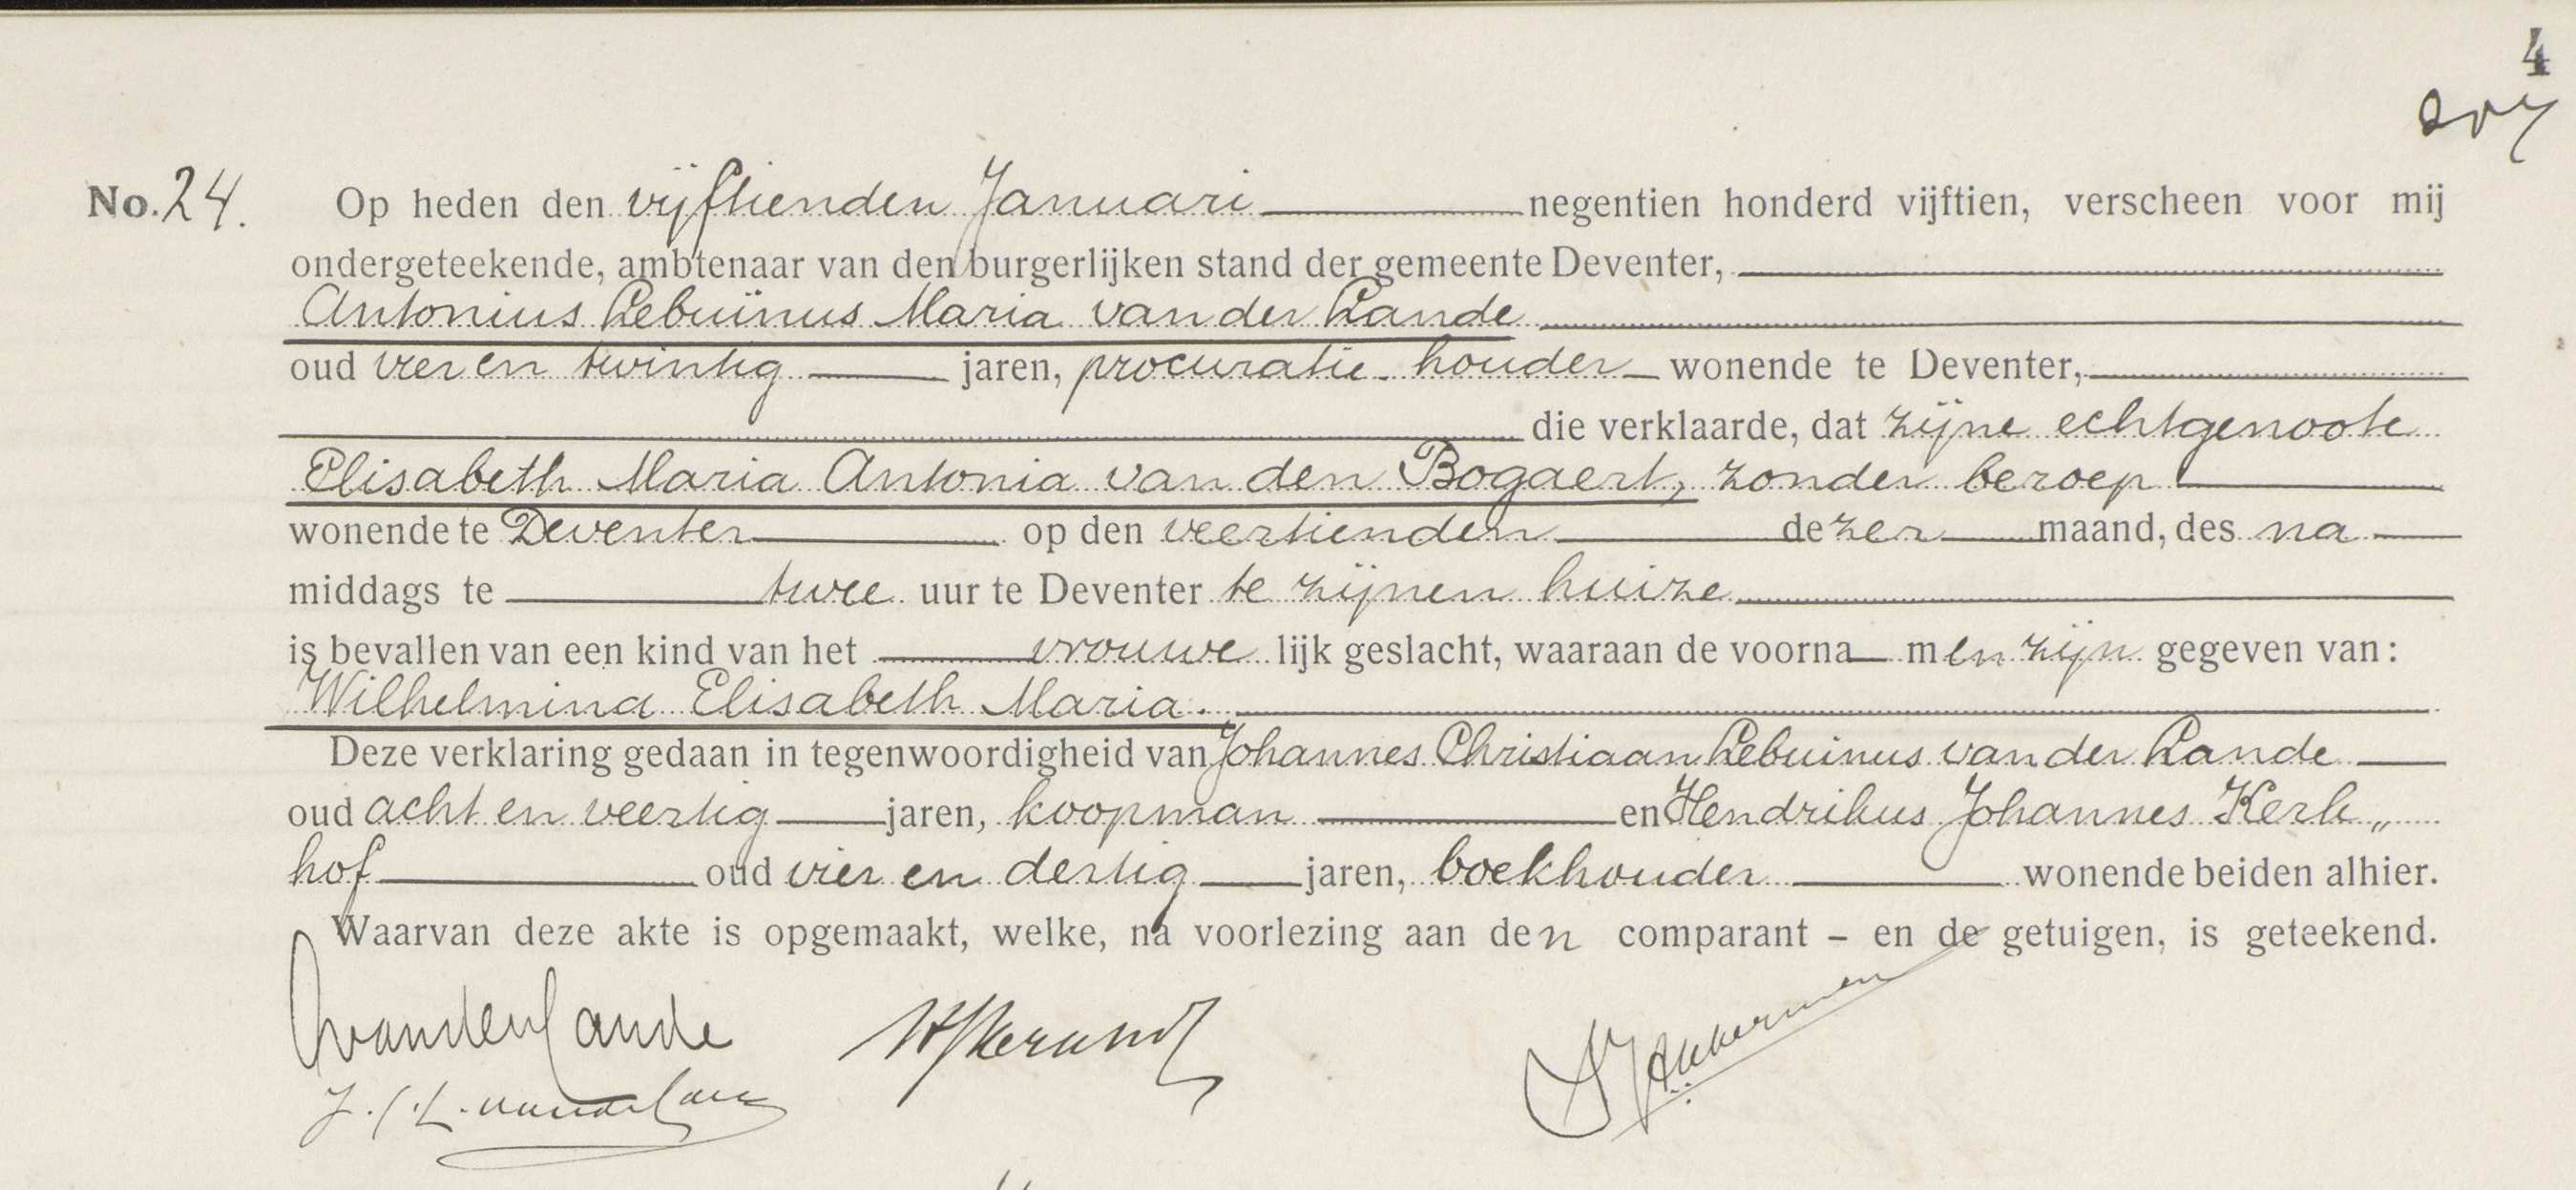 4
No. 24. Op heden den vijftienden Januari negentien honderd vijftien, verscheen voor mij
ondergeteekende, ambtenaar van den burgerlijken stand der gemeente Deventer,
Antonius Lebuïnus Maria van der Lande
oud vier en twintig jaren, procuratie-houder wonende te Deventer,
die verklaarde, dat zijne echtgenoote
Elisabeth Maria Antonia van den Bogaert, zonder beroep
wonende te Deventer op den veertienden dezer maand, des na
middags te twee uur te Deventer te zijnen huize
is bevallen van een kind van het vrouwelijk geslacht, waaraan de voornamen zijn gegeven van:
Wilhelmina Elisabeth Maria.
Deze verklaring gedaan in tegenwoordigheid van Johannes Christiaan Lebuinus van der Lande
oud acht en veertig jaren, koopman en Hendrikus Johannes Kerk„
hof oud vier en dertig jaren, boekhouder wonende beiden alhier.
Waarvan deze akte is opgemaakt, welke, na voorlezing aan den comparant - en de getuigen, is geteekend.
van der Lande